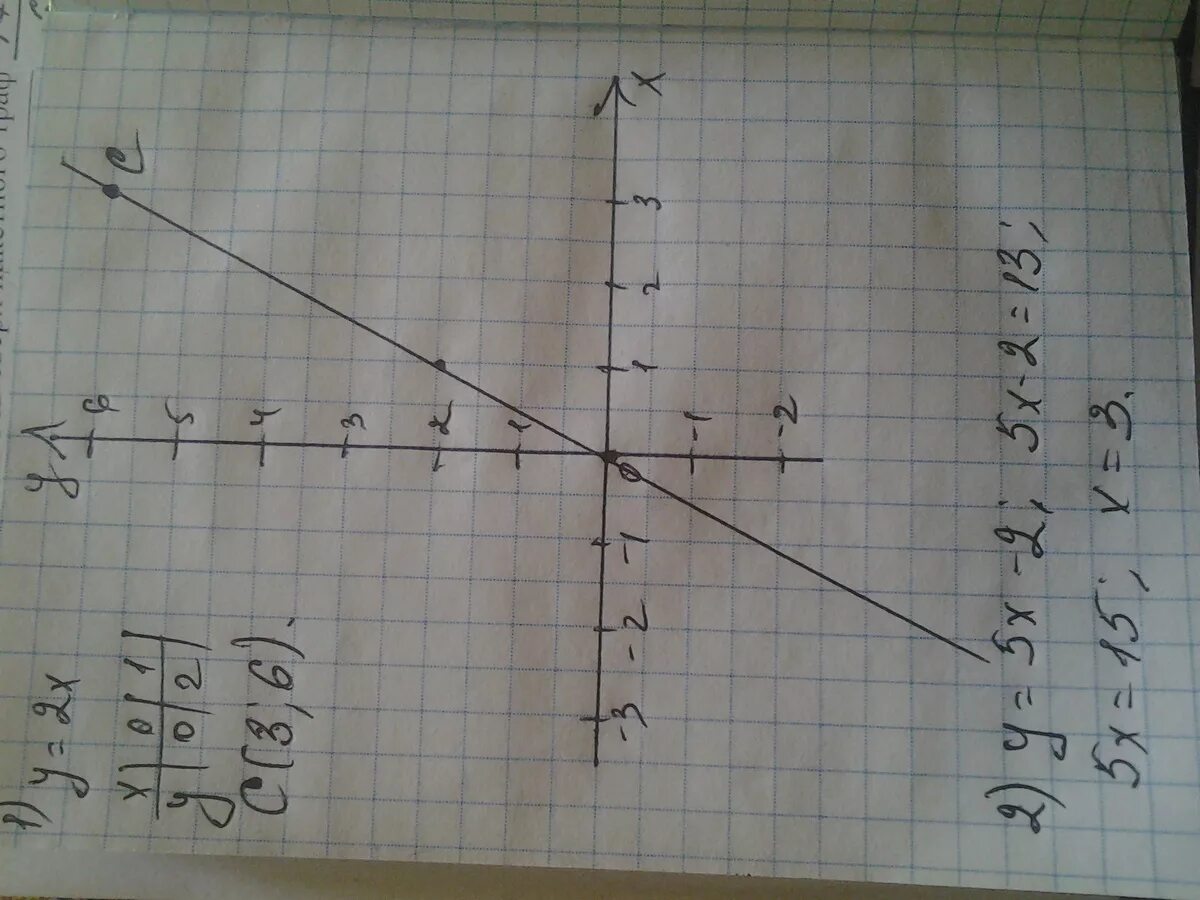 1) y = 2x
x | 0 | 1 |
y | 0 | 2 |
C(3; 6).
y
6
5
4
3
2
1
-3 -2 -1 0 1 2 3 x
-1
-2
C
2) y = 5x - 2; 5x - 2 = 13;
5x = 15; x = 3.